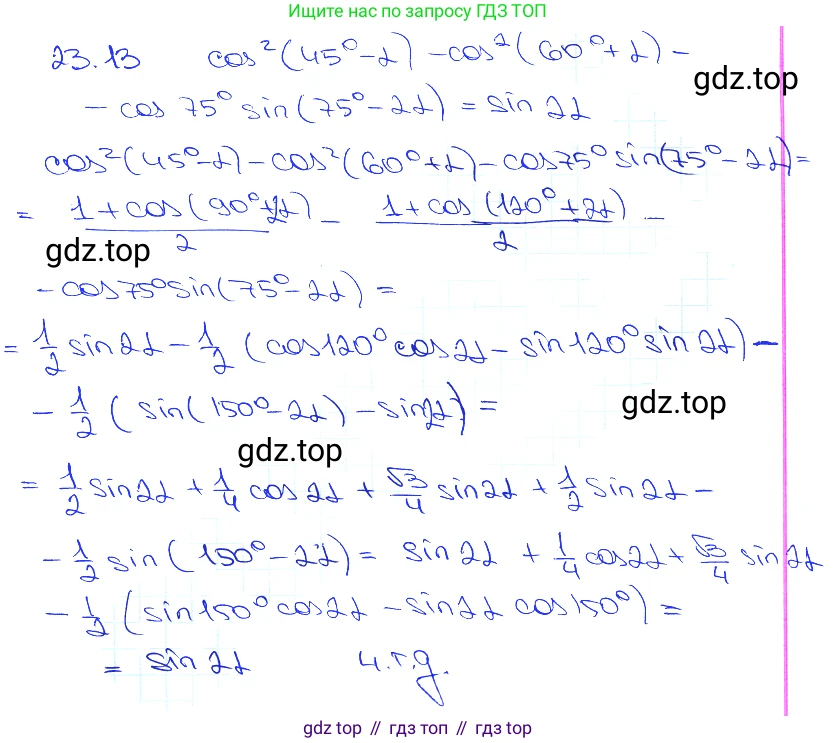 Ищите нас по запросу ГДЗ ТОП
23.13 cos²(45°-α) - cos²(60°+α) -
gdz.top
- cos 75° sin(75°-2α) = sin 2α
cos²(45°-α) - cos²(60°+α) - cos75° sin(75°-2α) =
= (1+cos(90°+2α))/2 - (1+cos(120°+2α))/2 -
gdz.top
- cos75° sin(75°-2α) =
= 1/2 sin2α - 1/2 (cos120° cos2α - sin120° sin2α) -
- 1/2 (sin(150°-2α) - sin2α) =
gdz.top
gdz.top
= 1/2 sin2α + 1/4 cos2α + √3/4 sin2α + 1/2 sin2α -
- 1/2 sin(150°-2α) = sin2α + 1/4 cos2α + √3/4 sin2α
- 1/2 (sin150° cos2α - sin2α cos150°) =
= sin2α ч.т.д.
gdz top // гдз топ // gdz top